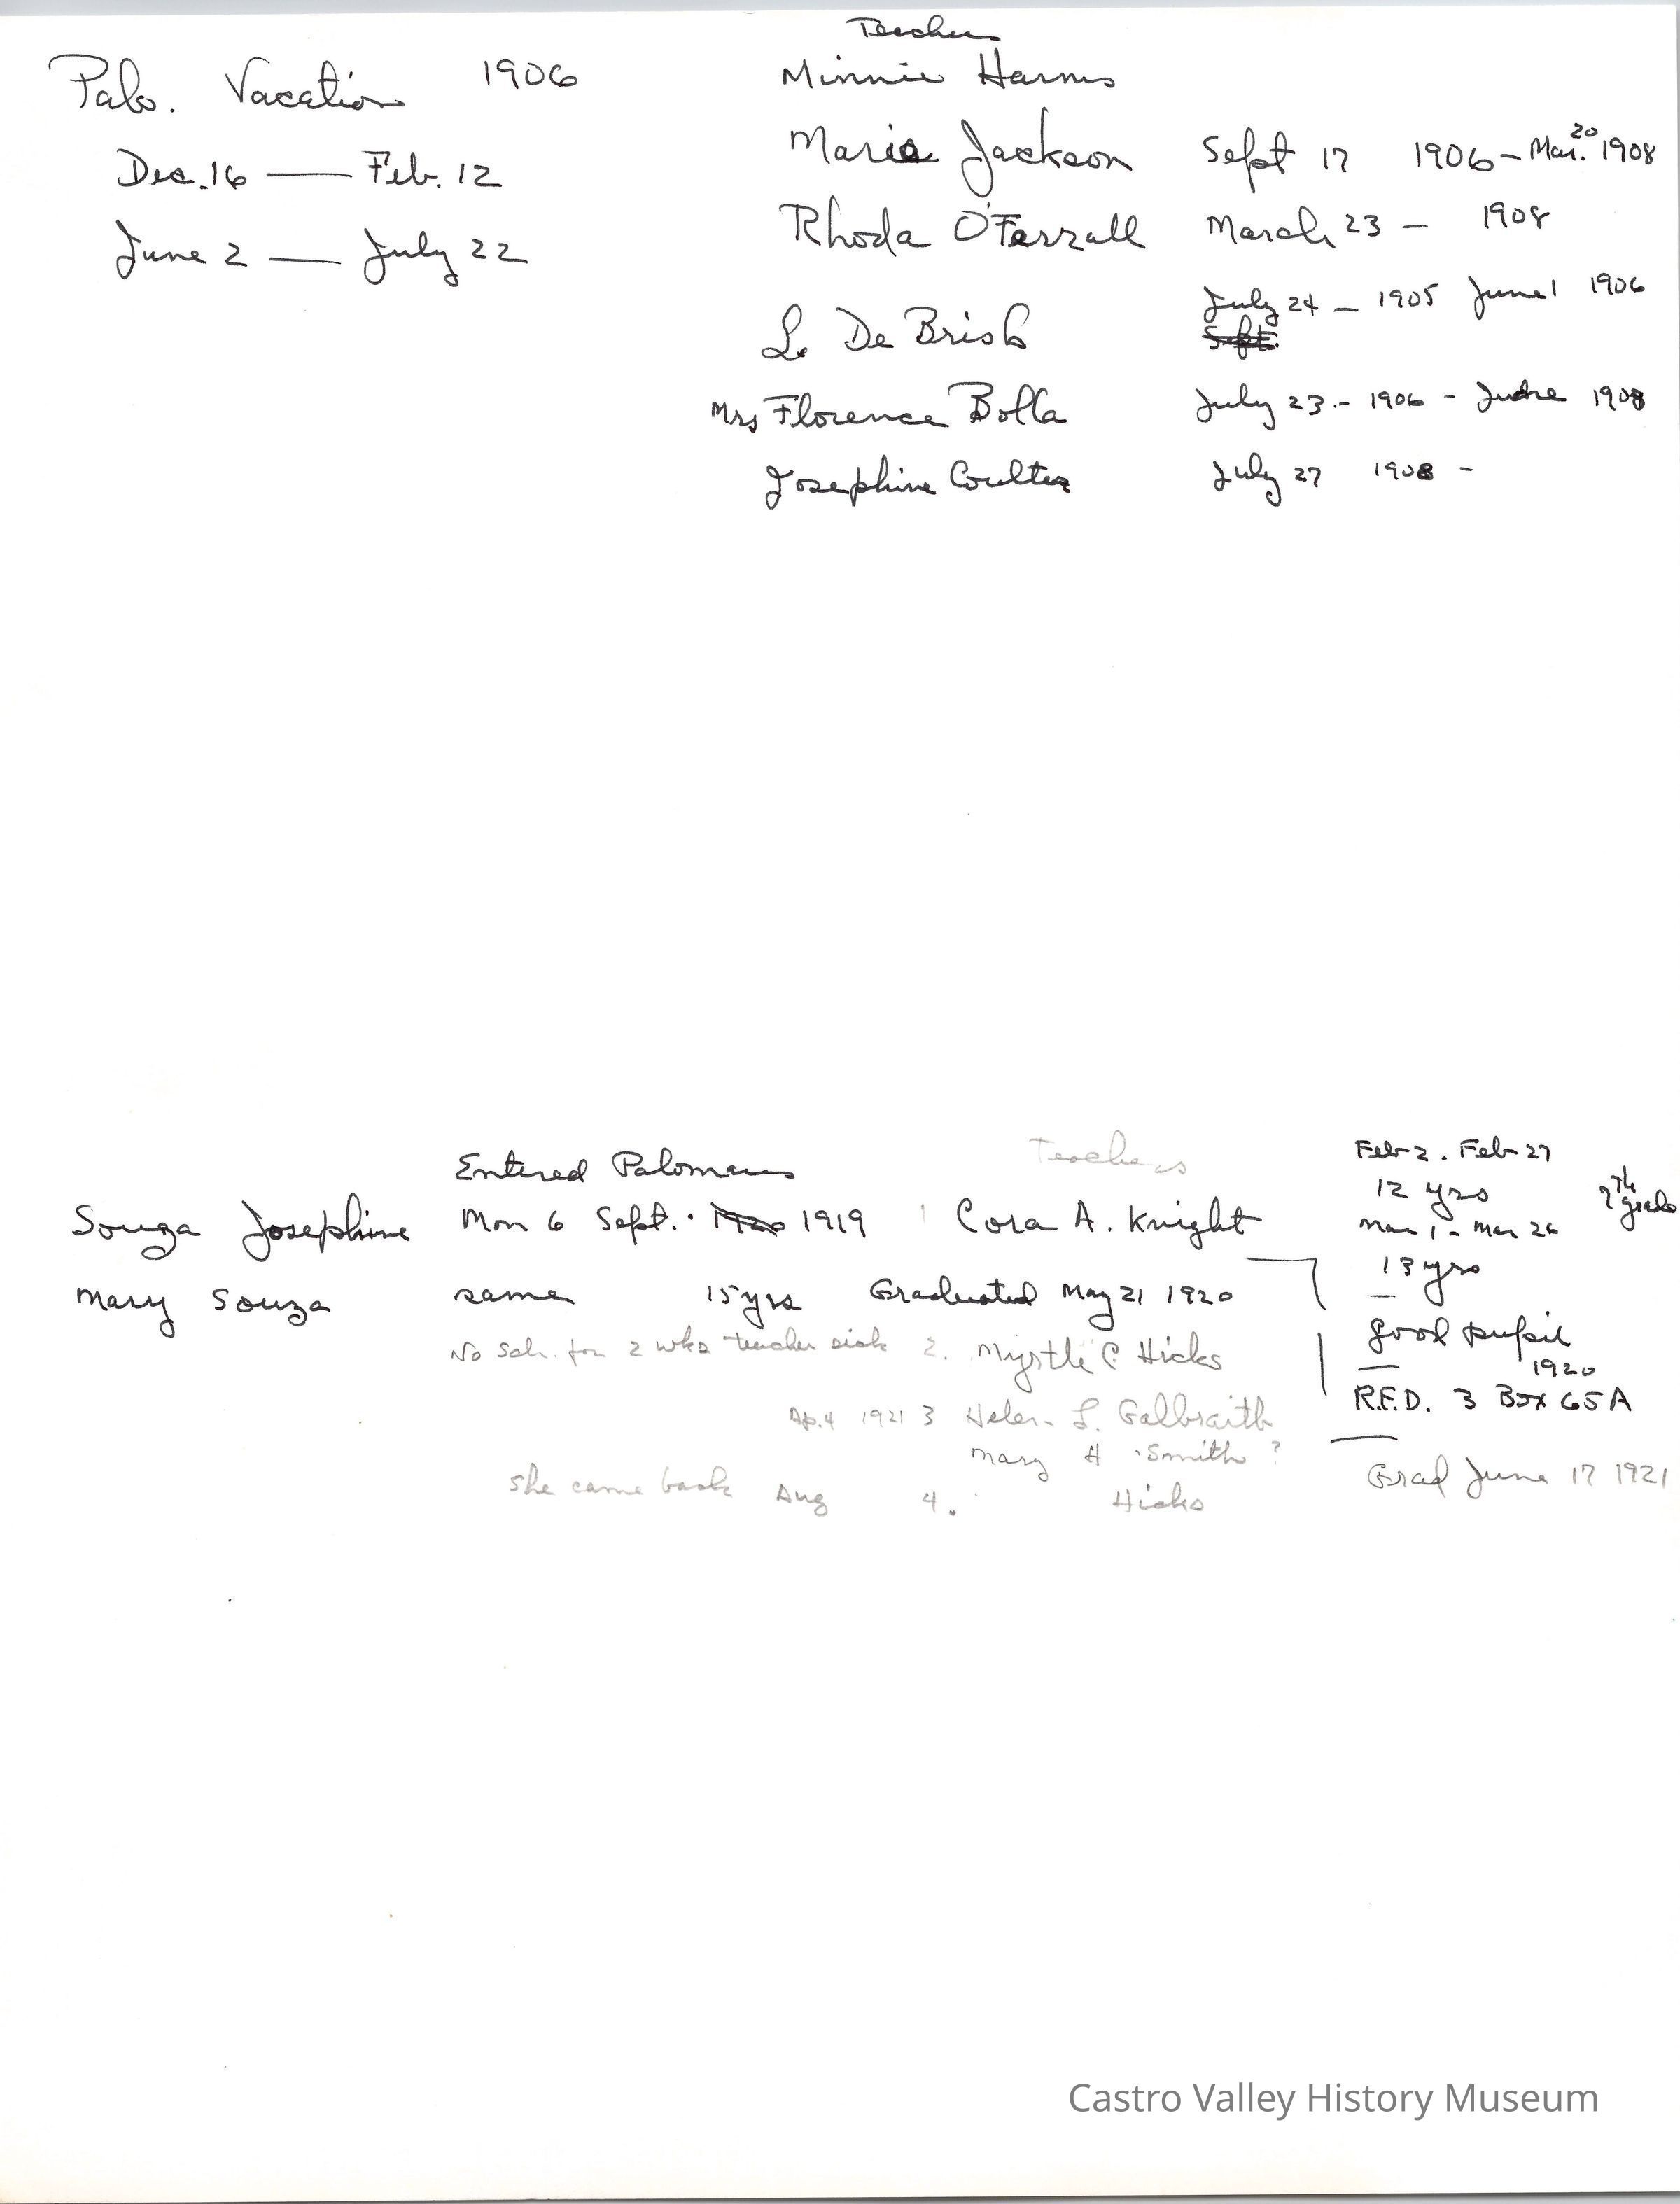 Palo. Vacation 1906
Dec. 16 — Feb. 12
June 2 — July 22
Teachers
Minnie Harms
Marie Jackson Sept 17 1906 - Mar. 20 1908
Rhoda O'Ferrall March 23 - 1908
July 24 - 1905 June 1 1906
L. De Brish Sept.
Mrs Florence Bolla July 23 - 1906 - June 1908
Josephine Coulter July 27 1908 -
Entered Palomares
Souza Josephine Mon 6 Sept. 1920 1919
Mary Souza same 15 yrs Graduated May 21 1920
No Sch. for 2 wks teacher sick
Teachers
1 Cora A. Knight
2. Myrtle C. Hicks
Ap. 4 1921 3 Helen L. Galbraith
Mary H Smith ?
She came back Aug 4. Hicks
Feb 2. Feb 27
12 yrs
7th grade
Mar 1 - Mar 26
13 yrs
good pupil
1920
R.F.D. 3 Box 65A
Grad June 17 1921
Castro Valley History Museum